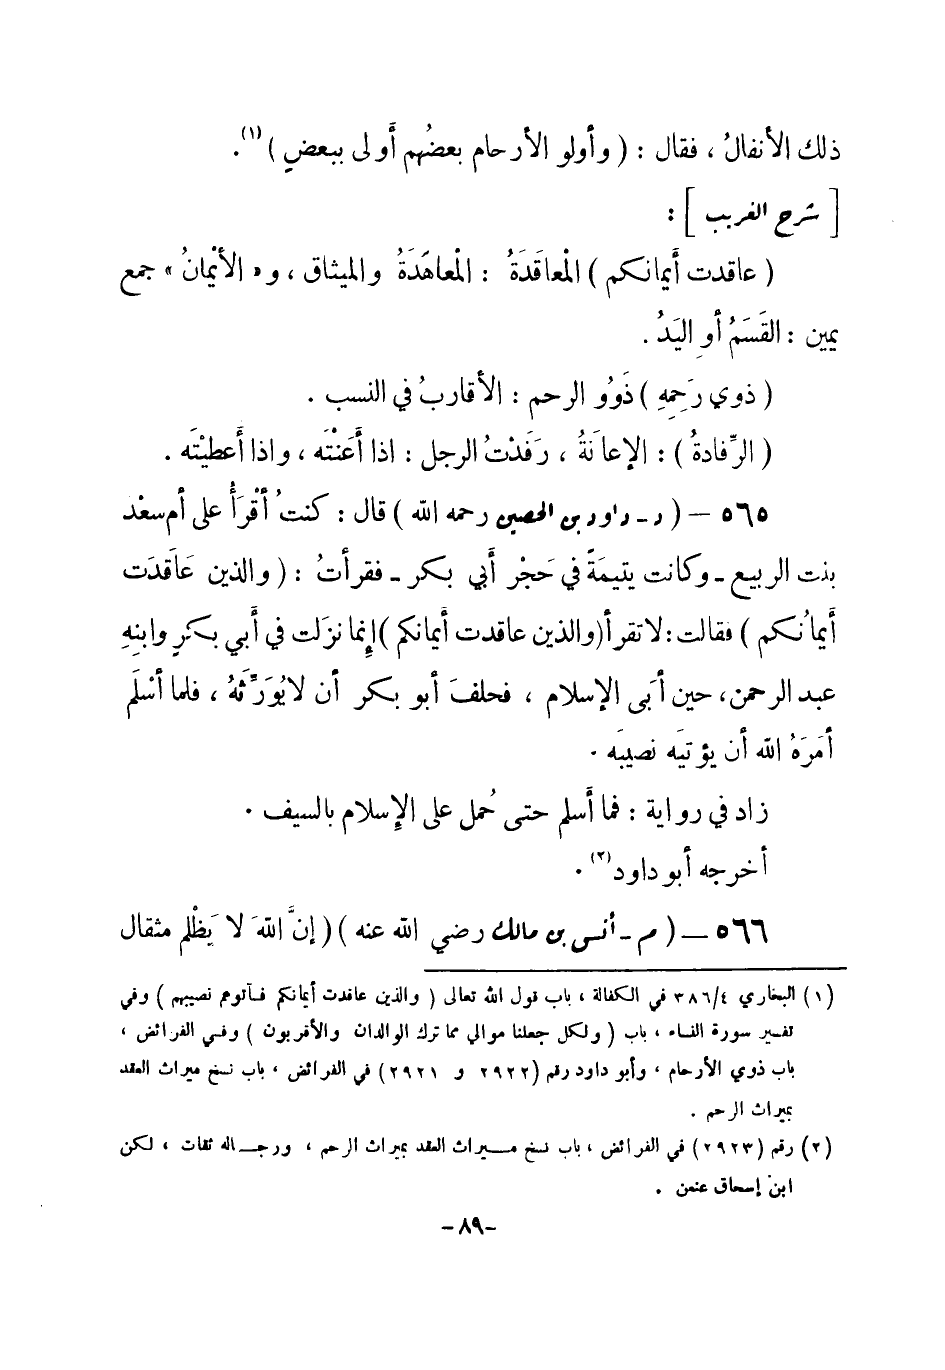 ذلك الأنفالُ ، فقال : ( وأولو الأرحام بعضُهم أَولى ببعضٍ )(١).
[ شرح الغريب ] :
( عاقدت أَيمانكم ) الْمعاقَدَةُ : الْمعاهَدَةُ والميثاق ، و« الأيْمانُ » جمع
يمين : القَسَمُ أو اليَدُ .
( ذوي رَحِمِهِ ) ذَوُو الرحم : الأقاربُ في النسب .
( الرِّفادةُ ) : الإعانَةُ ، رَفَدْتُ الرجل : اذا أَعَنْتَه ، واذا أَعطيْتَه .
٥٦٥ — ( د - داود بن الحصين رحمه الله ) قال : كنتُ أقْرَأُ على أم سعْد
بنت الربيع - وكانت يتيمَةً في حَجْر أَبي بكر - فقرأتُ : ( والذين عَاقَدَت
أَيمانُكم ) فقالت : لا تقرأ (والذين عاقدت أيمانكم) إنما نزَلت في أَبي بكرٍ وابنِهِ
عبد الرحمن، حين أَبى الإسلام ، فحلفَ أبو بكر أن لا يُوَرِّثَهُ ، فلما أسْلَم
أمَرَهُ الله أن يؤتيَه نصيبَه .
زاد في رواية : فما أَسلم حتى حُمل على الإسلام بالسيف .
أخرجه أبو داود(٢) .
٥٦٦ — ( م - أنس بن مالك رضي الله عنه ) ( إنَّ اللهَ لا يَظْلِم مثقال
(١) البخاري ٣٨٦/٤ في الكفالة ، باب قول الله تعالى ( والذين عاقدت أيمانكم فـآتوهم نصيبهم ) وفي
تفسير سورة النساء ، باب ( ولكل جعلنا موالي مما ترك الوالدان والأقربون ) وفي الفرائض ،
باب ذوي الأرحام ، وأبو داود رقم (٢٩٢٢ و ٢٩٢١) في الفرائض ، باب نسخ ميراث العقد
بميراث الرحم .
(٢) رقم (٢٩٢٣) في الفرائض ، باب نسخ مــيراث العقد بميراث الرحم ، ورجـاله ثقات ، لكن
ابن إسحاق عنعن .
-٨٩-